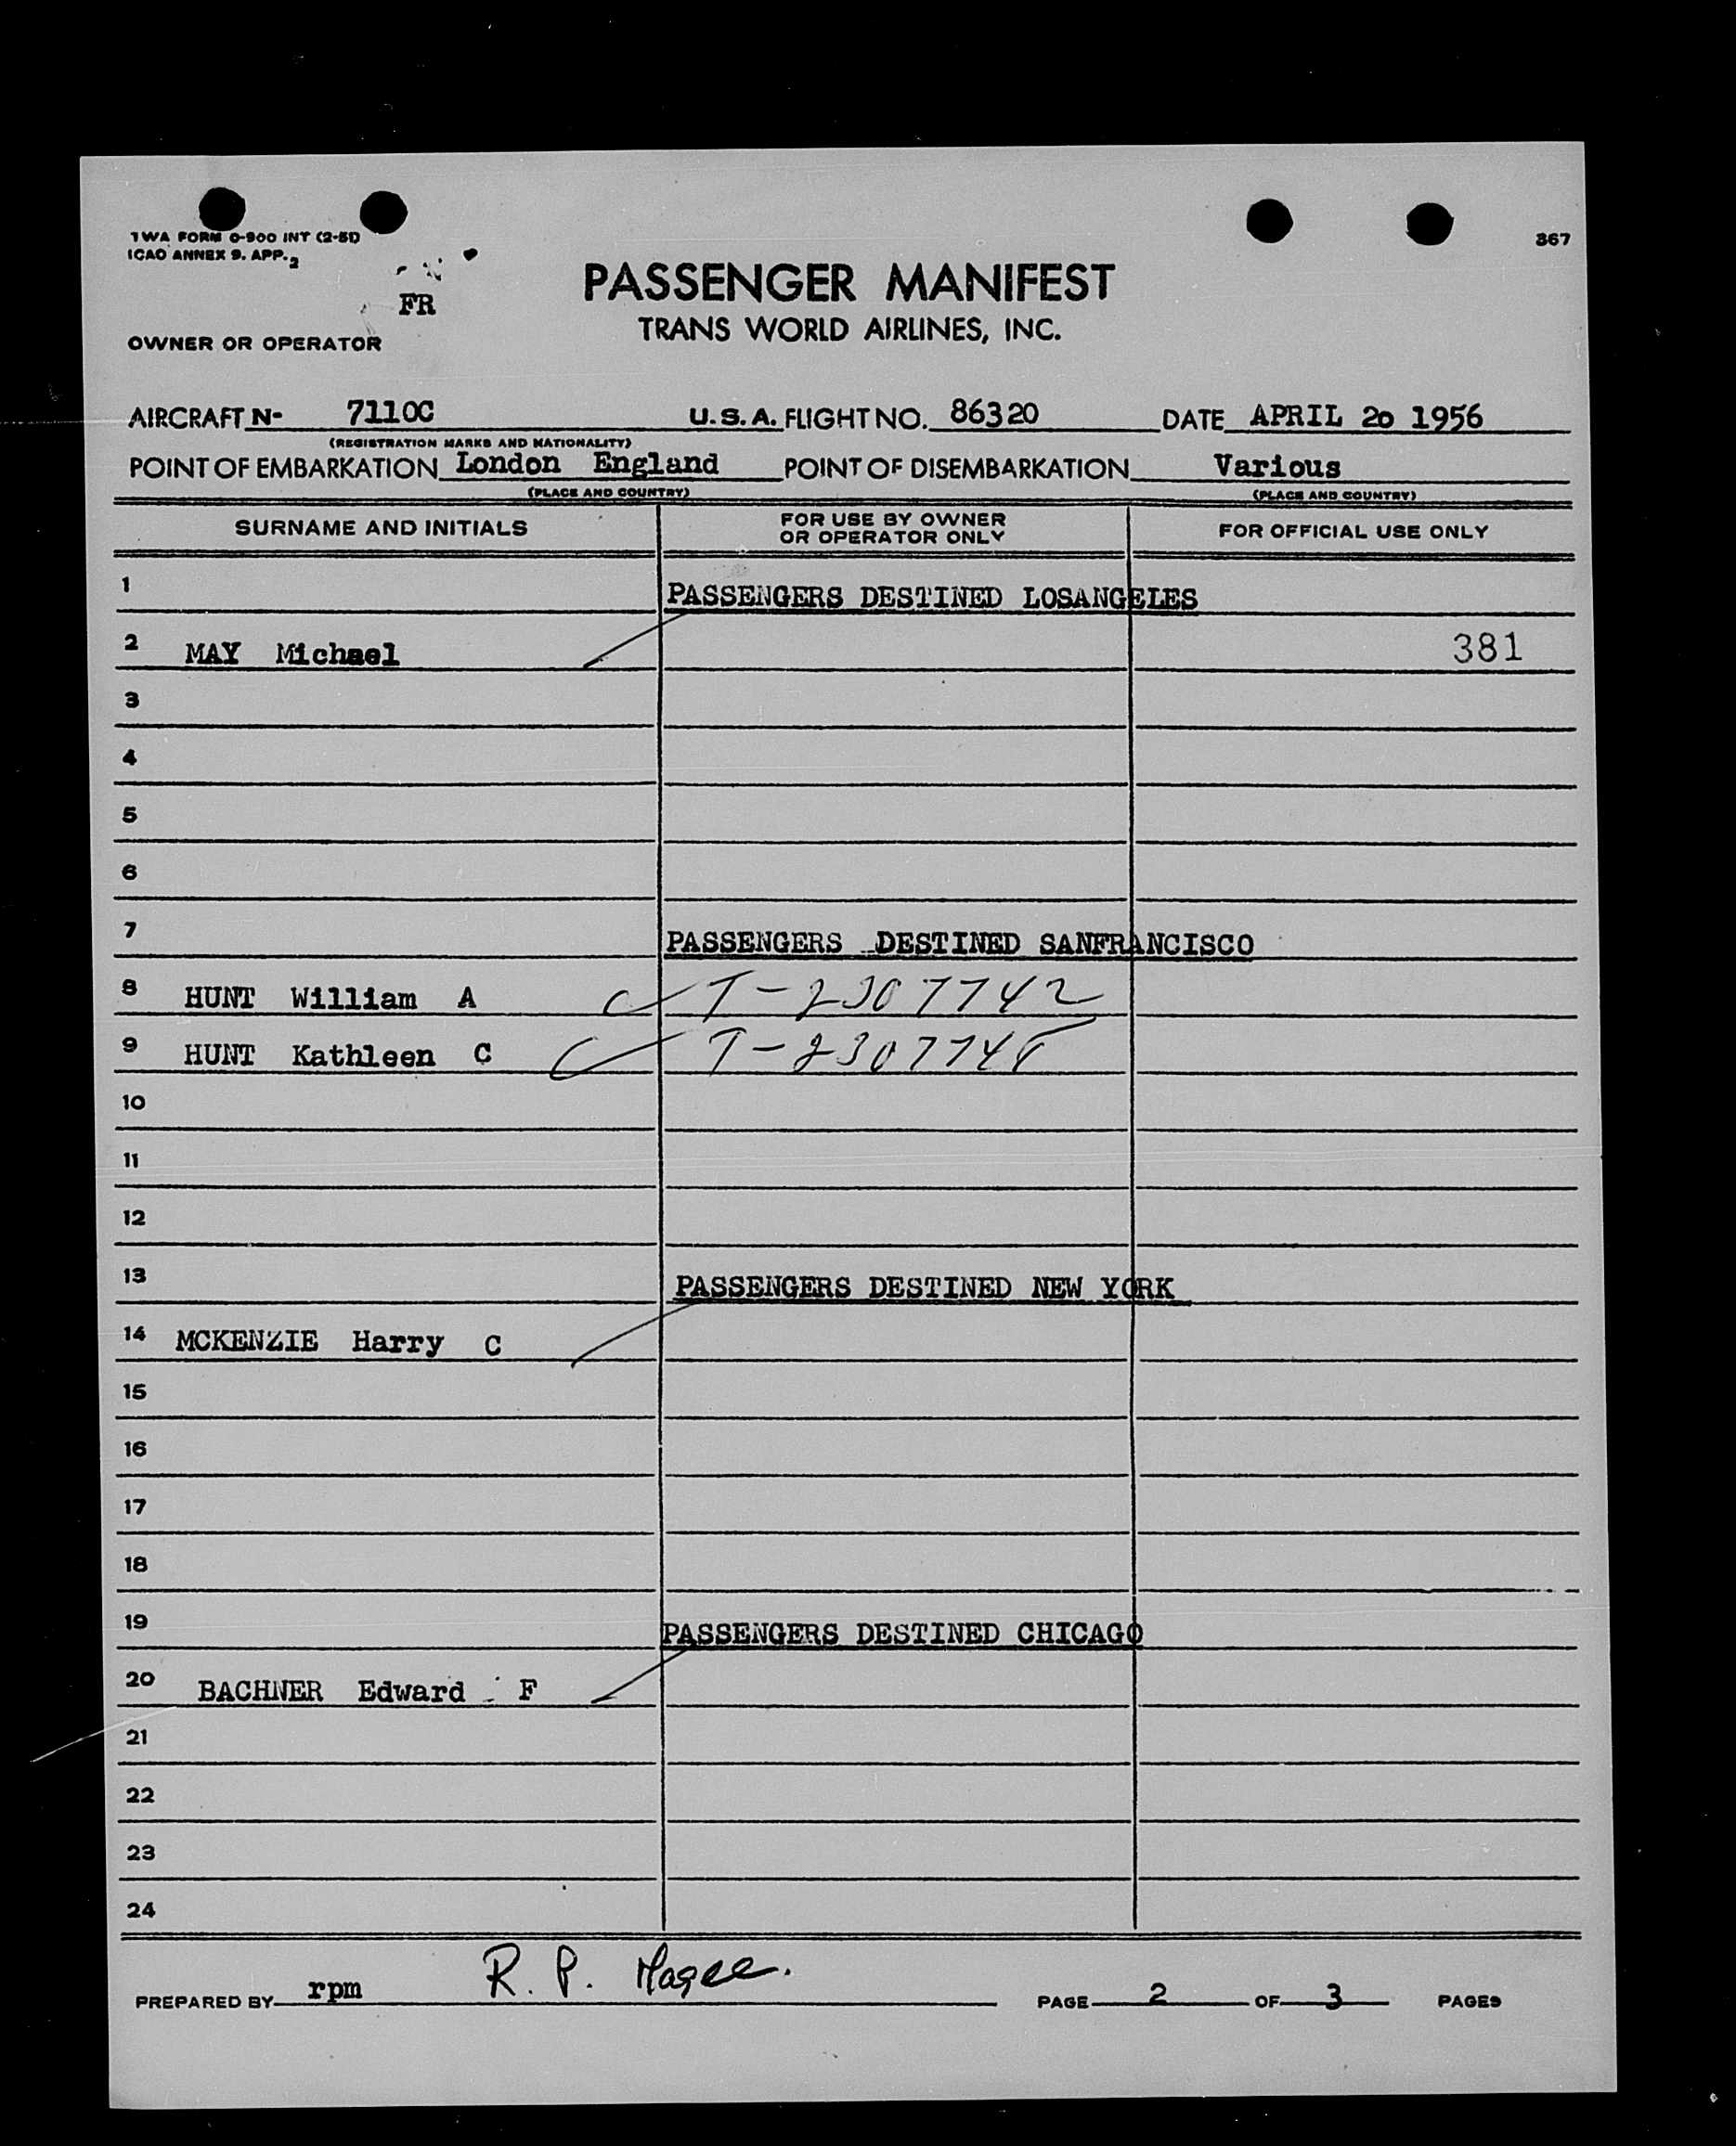 TWA FORM O-900 INT (2-51)
ICAO ANNEX 9. APP. 2
367
FR
PASSENGER MANIFEST
TRANS WORLD AIRLINES, INC.
OWNER OR OPERATOR
AIRCRAFT N- 7110C U.S.A. FLIGHT NO. 86320 DATE APRIL 20 1956
(REGISTRATION MARKS AND NATIONALITY)
POINT OF EMBARKATION London England POINT OF DISEMBARKATION Various
(PLACE AND COUNTRY) (PLACE AND COUNTRY)
SURNAME AND INITIALS FOR USE BY OWNER OR OPERATOR ONLY FOR OFFICIAL USE ONLY
1 PASSENGERS DESTINED LOSANGELES
2 MAY Michael 381
3
4
5
6
7 PASSENGERS DESTINED SANFRANCISCO
8 HUNT William A T-2307742
9 HUNT Kathleen C
10
11
12
13 PASSENGERS DESTINED NEW YORK
14 MCKENZIE Harry C
15
16
17
18
19 PASSENGERS DESTINED CHICAGO
20 BACHNER Edward F
21
22
23
24
PREPARED BY rpm R. P. Magee. PAGE 2 OF 3 PAGES